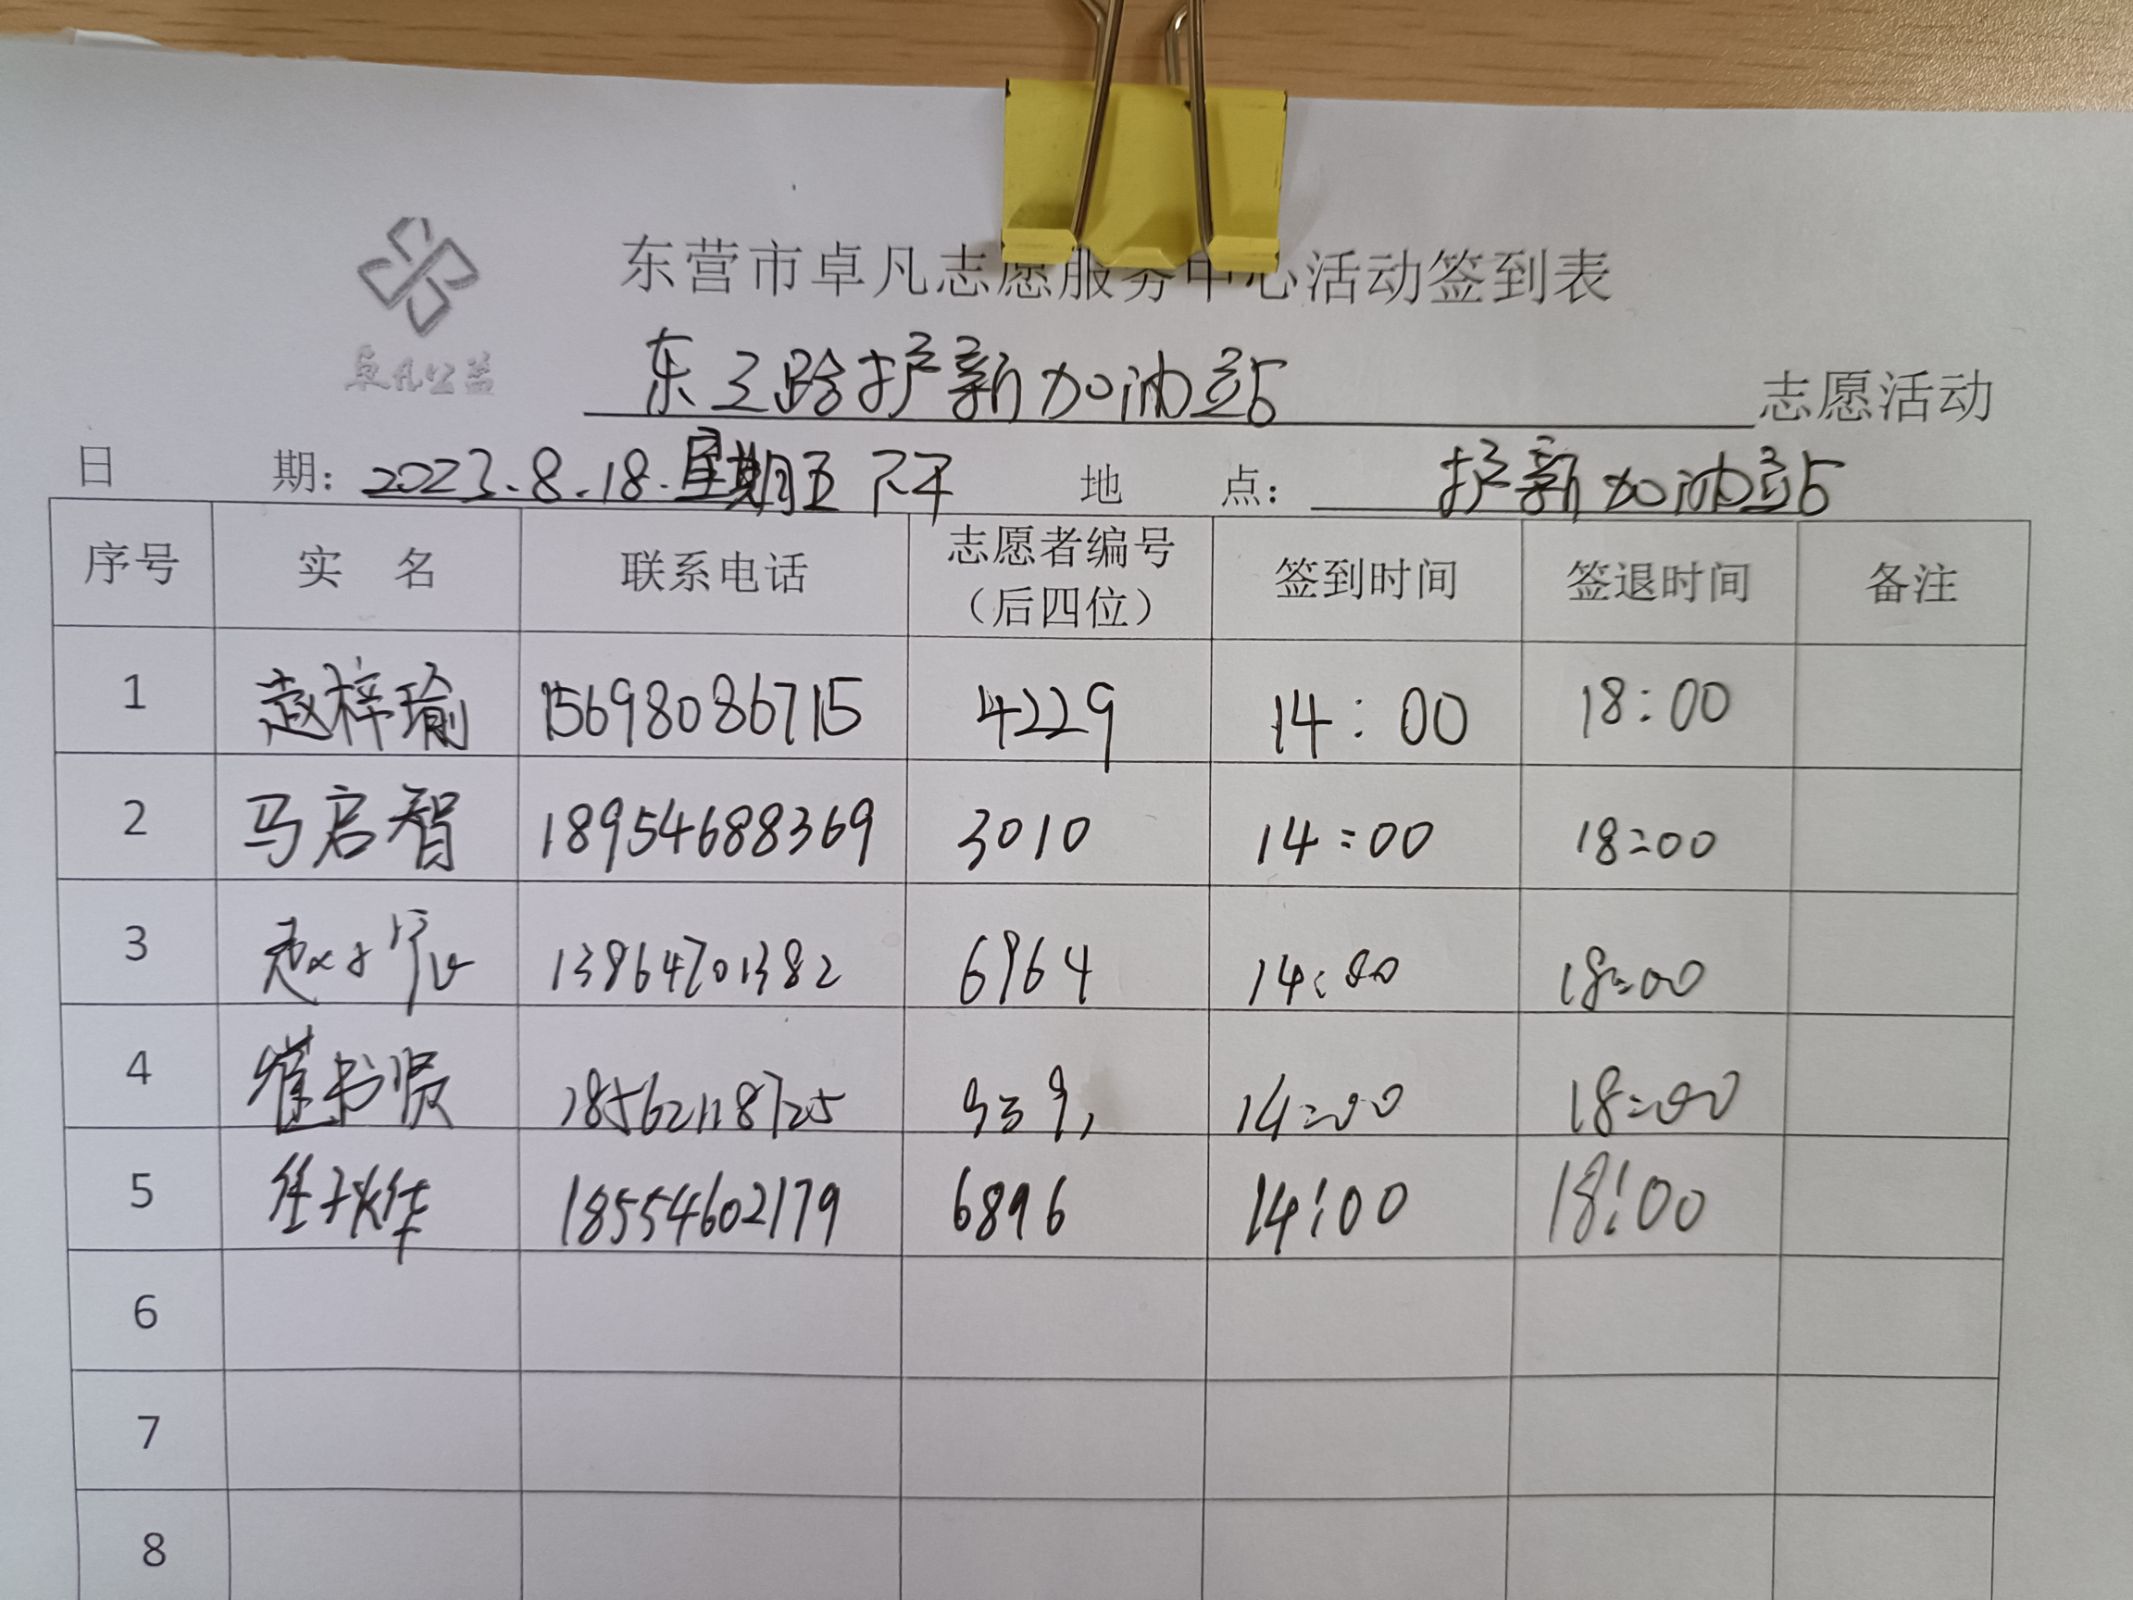 东营市卓凡志愿服务中心活动签到表
卓凡公益
东三路护新加油站 志愿活动
日 期: 2023.8.18.星期五 下午 地 点: 护新加油站
序号 实 名 联系电话 志愿者编号(后四位) 签到时间 签退时间 备注
1 赵梓瑜 15698086715 4229 14:00 18:00
2 马启智 18954688369 3010 14:00 18:00
3 13864701382 6964 14:00 18:00
4 崔书贤 18562118725 14:00 18:00
5 18554602179 6896 14:00 18:00
6
7
8